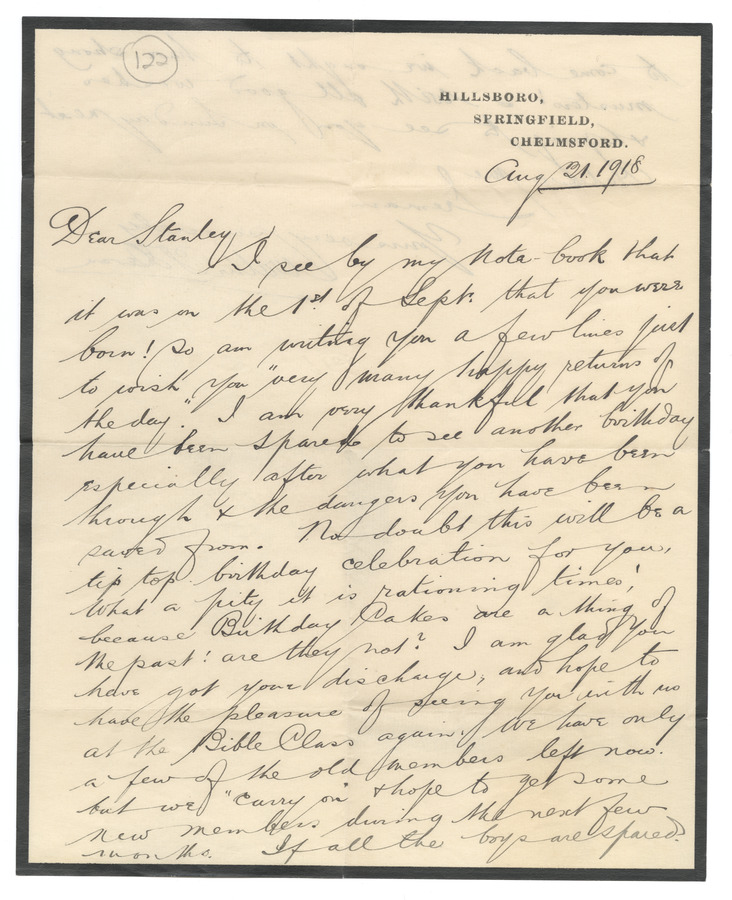 122
HILLSBORO,
SPRINGFIELD,
CHELMSFORD.
Aug 21. 1918
Dear Stanley
I see by my Note-book that
it was on the 1st of Sept. that you were
born! So am writing you a few lines just
to wish you "very many happy returns of
the day." I am very thankful that you
have been spared to see another birthday
especially after what you have been
through & the dangers you have been
saved from. No doubt this will be a
tip top birthday celebration for you,
What a pity it is rationing times!
because Birthday Cakes are a thing of
the past! are they not? I am glad you
have got your discharge, and hope to
have the pleasure of seeing you with us
at the Bible Class again. We have only
a few of the old members left now.
but we "carry on" & hope to get some
new members during the next few
months. If all the boys are spared